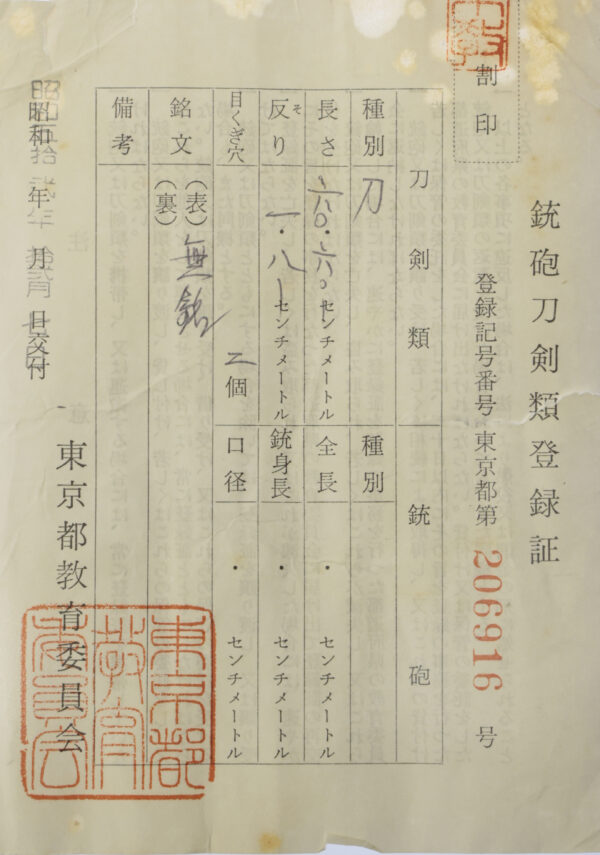 割印
銃砲刀剣類登録証
登録記号番号 東京都第 206916 号
刀剣類 銃砲
種別 刀 種別
長さ 六〇・六 センチメートル 全長 ・ センチメートル
反り そ 一・八 センチメートル 銃身長 ・ センチメートル
目くぎ穴 二個 口径 ・ センチメートル
銘文 (表) (裏) 無銘
備考
昭和 年 月 日交付
昭和五拾弐年
東京都教育委員会
東京都
教育
委員会